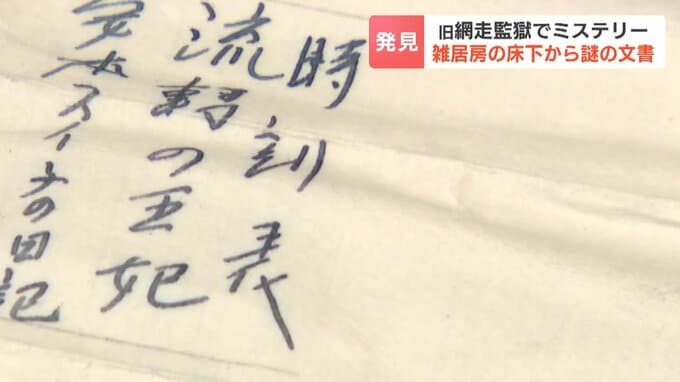 発見
旧網走監獄でミステリー
雑居房の床下から謎の文書
時刻表
流転の王妃
スイートの日記